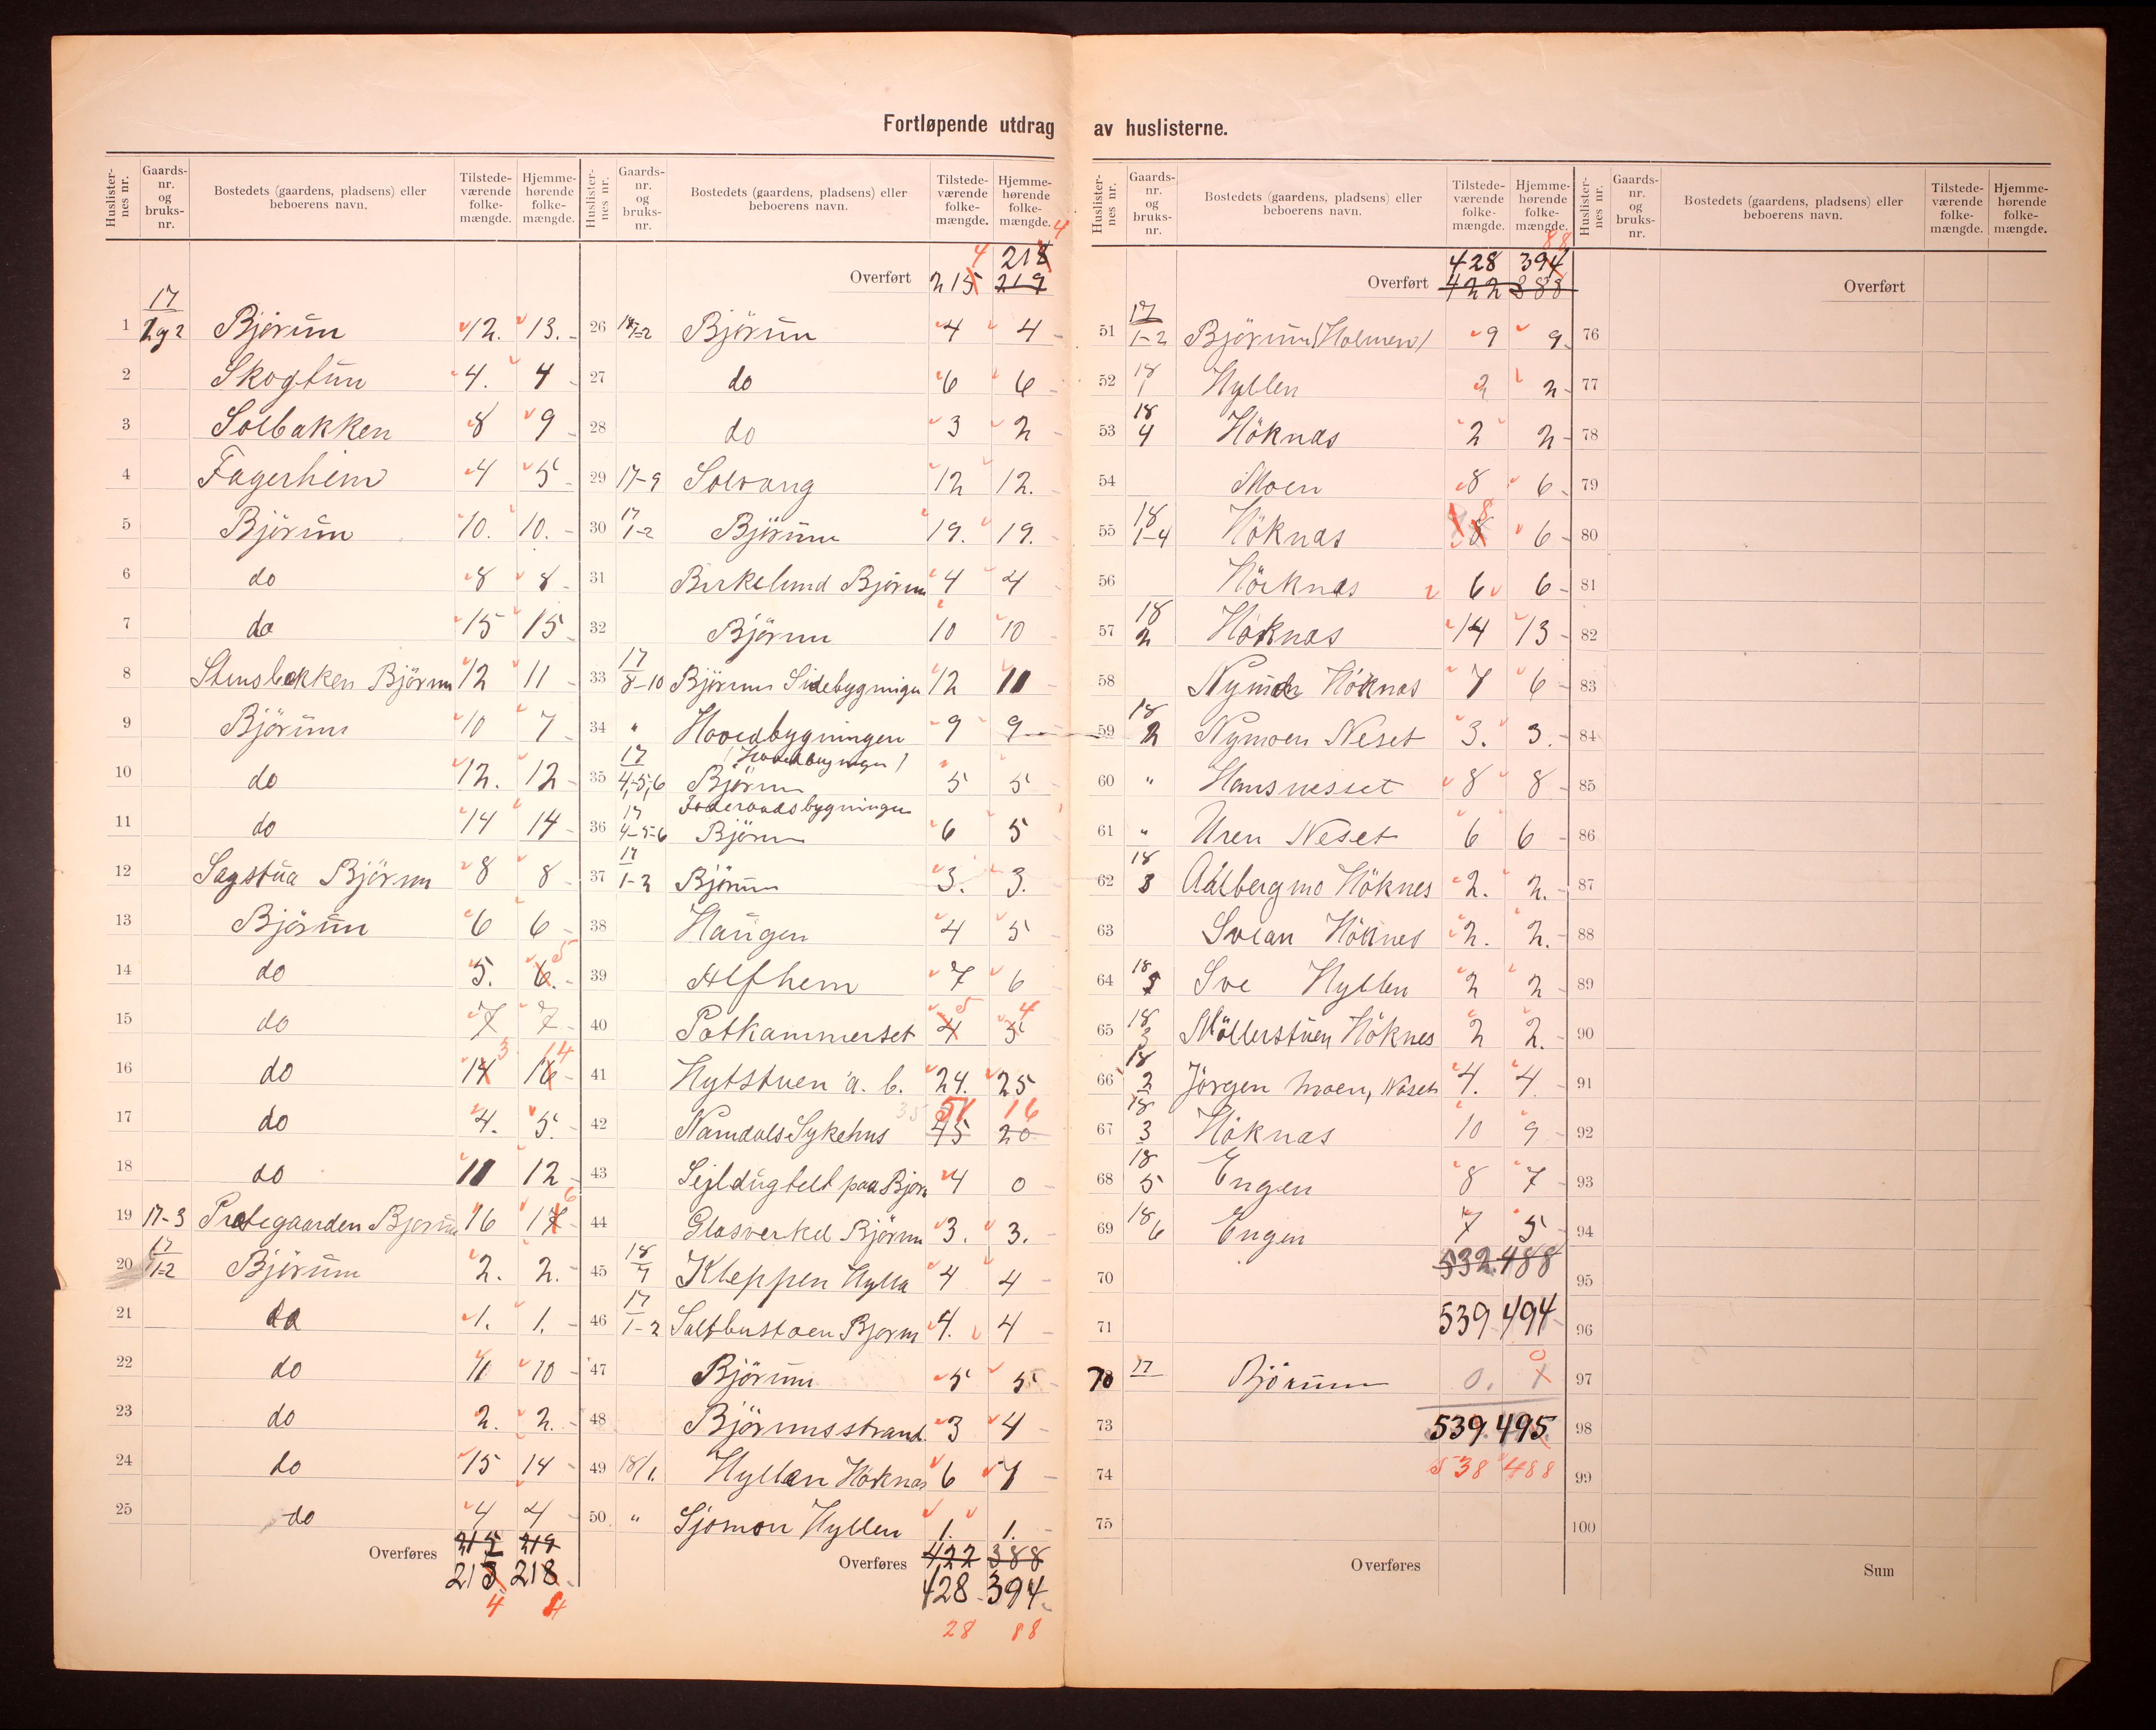 Fortløpende utdrag av huslisterne.
Huslister-nes nr. Gaards-nr. og bruks-nr. Bostedets (gaardens, pladsens) eller beboerens navn. Tilstede-værende folke-mængde. Hjemme-hørende folke-mængde.
17
1 1 og 2 Bjørum 12. 13.
2 Skogtun 4. 4
3 Solbakken 8 9
4 Fagerheim 4 5
5 Bjørum 10. 10.
6 do 8 8
7 do 15 15
8 Stensbakken Bjørum 12 11
9 Bjørum 10 7
10 do 12. 12
11 do 14 14
12 Sagstua Bjørum 8 8
13 Bjørum 6 6
14 do 5. 6. 5
15 do 7 7
16 do 14 3 16 14
17 do 4. 5.
18 do 11 12
19 17-3 Prestegaarden Bjorum 16 17 6
17
20 1-2 Bjørum 2. 2.
21 do 1. 1.
22 do 11 10
23 do 2. 2.
24 do 15 14
25 do 4 4
Overføres 215 219
215 218
4 4
Huslister-nes nr. Gaards-nr. og bruks-nr. Bostedets (gaardens, pladsens) eller beboerens navn. Tilstede-værende folke-mængde. Hjemme-hørende folke-mængde.
4 218 4
Overført 215 219
26 17-2 Björum 4 4
27 do 6 6
28 do 3 2
29 17-9 Solvang 12 12.
17
30 1-2 Björum 19. 19.
31 Birkelund Björum 4 4
32 Björum 10 10
17
33 8-10 Björum Sidebygningen 12 11
34 " Hovedbygningen 9 9
17 (Hovedbygningen)
35 4,-5,6 Björum 5 5
17 Föderaadsbygningen
36 4-5-6 Björum 6 5
17
37 1-2 Björum 3. 3.
38 Haugen 4 5
39 Alfhem 7 6
40 Potkammerset 4 5 5 4
41 Hytstuen a. b. 24. 25
35 51 16
42 Namdals Sykehus 45 20
43 Sejldugtelt paa Björum 4 0
44 Glasverket Björum 3. 3.
18
45 7 Kleppen Hylla 4 4
17
46 1-2 Saltbustoen Bjorum 4. 4
47 Björum 5 5
48 Björumsstrand. 3 4
49 18/1. Hyllan Höknas 6 7
50 " Sjomon Hyllen 1. 1.
Overføres 422 388
428 394
28 88
Huslister-nes nr. Gaards-nr. og bruks-nr. Bostedets (gaardens, pladsens) eller beboerens navn. Tilstede-værende folke-mængde. Hjemme-hørende folke-mængde.
88
428 394
Overført 422 388
17
51 1-2 Björum (Holmen) 9 9
18
52 1 Hyllen 2 2
18
53 4 Höknas 2 2
54 Moen 8 6
18 8
55 1-4 Höknas 8 6
56 Höcknas 6 6
18
57 2 Höknas 14 13
58 Nymoen Höknas 7 6
18
59 2 Nymoen Neset 3. 3.
60 " Hansnesset 8 8
61 " Uren Neset 6 6
18
62 3 Aalbergmo Höknes 2. 2.
63 Svean Höknes 2. 2.
18
64 Sve Hyllen 2 2
18
65 3 Möllerstuen Höknes 2 2.
18
66 2 Jörgen moen, Näset 4. 4.
18
67 3 Höknas 10 9
18
68 5 Engen 8 7
18
69 6 Engen 7 5
532 488
70
71 539 494
0
70 17 Björum 0. 1
73 539. 495.
74 538 488
75
Overføres
Huslister-nes nr. Gaards-nr. og bruks-nr. Bostedets (gaardens, pladsens) eller beboerens navn. Tilstede-værende folke-mængde. Hjemme-hørende folke-mængde.
Overført
76
77
78
79
80
81
82
83
84
85
86
87
88
89
90
91
92
93
94
95
96
97
98
99
100
Sum